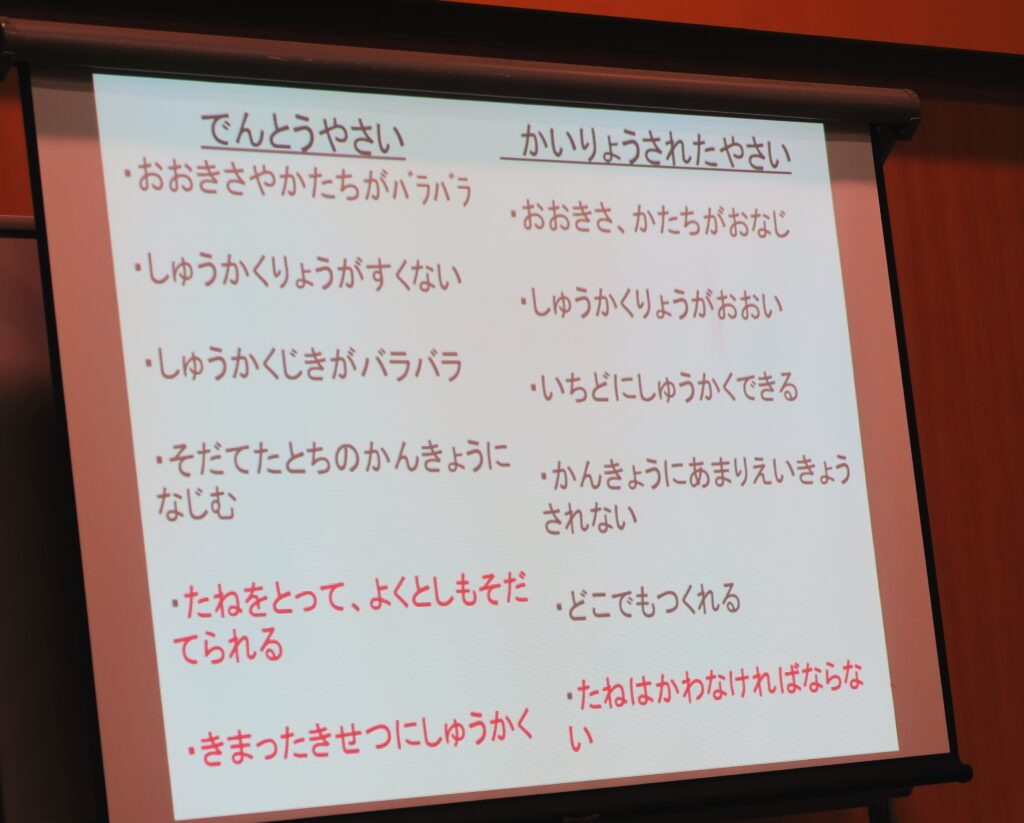 でんとうやさい
・おおきさやかたちがバラバラ
・しゅうかくりょうがすくない
・しゅうかくじきがバラバラ
・そだてたとちのかんきょうに
なじむ
・たねをとって、よくとしもそだ
てられる
・きまったきせつにしゅうかく
かいりょうされたやさい
・おおきさ、かたちがおなじ
・しゅうかくりょうがおおい
・いちどにしゅうかくできる
・かんきょうにあまりえいきょう
されない
・どこでもつくれる
・たねはかわなければならな
い